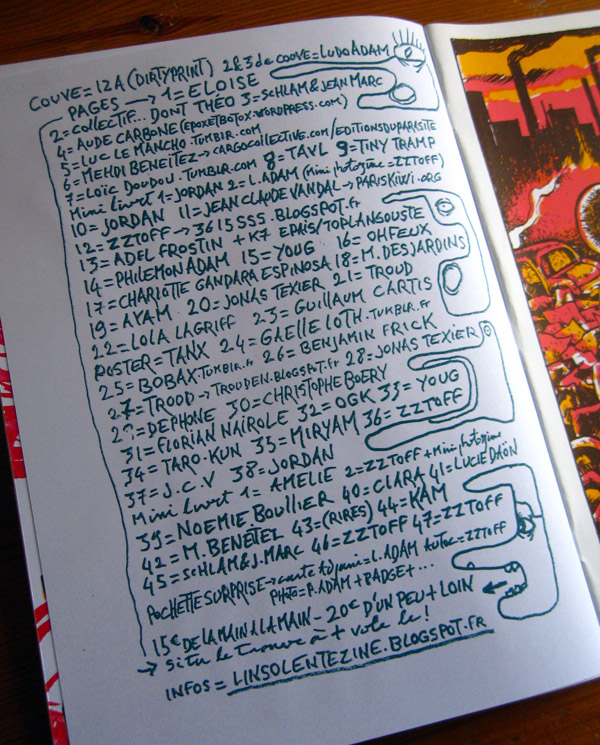 COUVE = 12A (DIRTYPRINT) 2&3 de COUVE = LUDO ADAM
PAGES → 1 = ELOISE
2 = COLLECTIF... DONT THÉO 3 = SCHLAM & JEAN MARC
4 = AUDE CARBONE (EPOXETBOTOX.WORDPRESS.COM)
5 = LUC LE MANCHO.TUMBLR.COM
6 = MEHDI BENEITEZ → CARGOCOLLECTIVE.COM/EDITIONSDUPARASITE
7 = LOÏC DOUDOU.TUMBLR.COM 8 = TAVL 9 = TINY TRAMP
Mini Livret 1 = JORDAN 2 = L.ADAM (Mini photozine = ZZTOFF)
10 = JORDAN 11 = JEAN CLAUDE VANDAL → PARISKIWI.ORG
12 = ZZTOFF → 36 15 SSS.BLOGSPOT.fr
13 = ADEL FROSTIN + K7 EPAIS/TOPLANGOUSTE
14 = PHILEMON ADAM 15 = YOUG 16 = OHFEUX
17 = CHARLOTTE GANDARA ESPINOSA 18 = M.DESJARDINS
19 = AYAM 20 = JONAS TEXIER 21 = TROUD
22 = LOLA LAGRIFF 23 = GUILLAUM CARTIS
POSTER = TANX 24 = GAELLE LOTH.TUMBLR.fr
25 = BOBAX.TUMBLR.fr 26 = BENJAMIN FRICK
27 = TROOD → TROUDEN.BLOGSPOT.fr 28 = JONAS TEXIER
29 = DEPHONE 30 = CHRISTOPHE BOERY
31 = FLORIAN NAIROLE 32 = OGK 33 = YOUG
34 = TARO.KUN 35 = MIRYAM 36 = ZZTOFF
37 = J.C.V 38 = JORDAN
Mini Livret 1 = AMELIE 2 = ZZTOFF + Mini photozine
39 = NOEMIE.BOULLIER 40 = CLARA 41 = LUCIE DAÖN
42 = M.BENETEL 43 = (RIRES) 44 = KAM
45 = SCHLAM & J.MARC 46 = ZZTOFF 47 = ZZTOFF
POCHETTE SURPRISE → carte = L.ADAM Autoc = ZZTOFF
PHOTO = P.ADAM + BADGET + ...
15€ DE LA MAIN A LA MAIN _ 20€ D'UN PEU + LOIN
→ si tu le trouve à + vole le !
INFOS = LINSOLENTEZINE.BLOGSPOT.FR